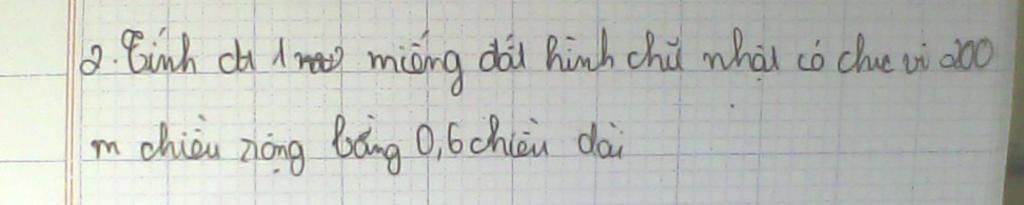 2. Tính dt 1 miếng đất hình chữ nhật có chu vi 200
m chiều rộng bằng 0,6 chiều dài